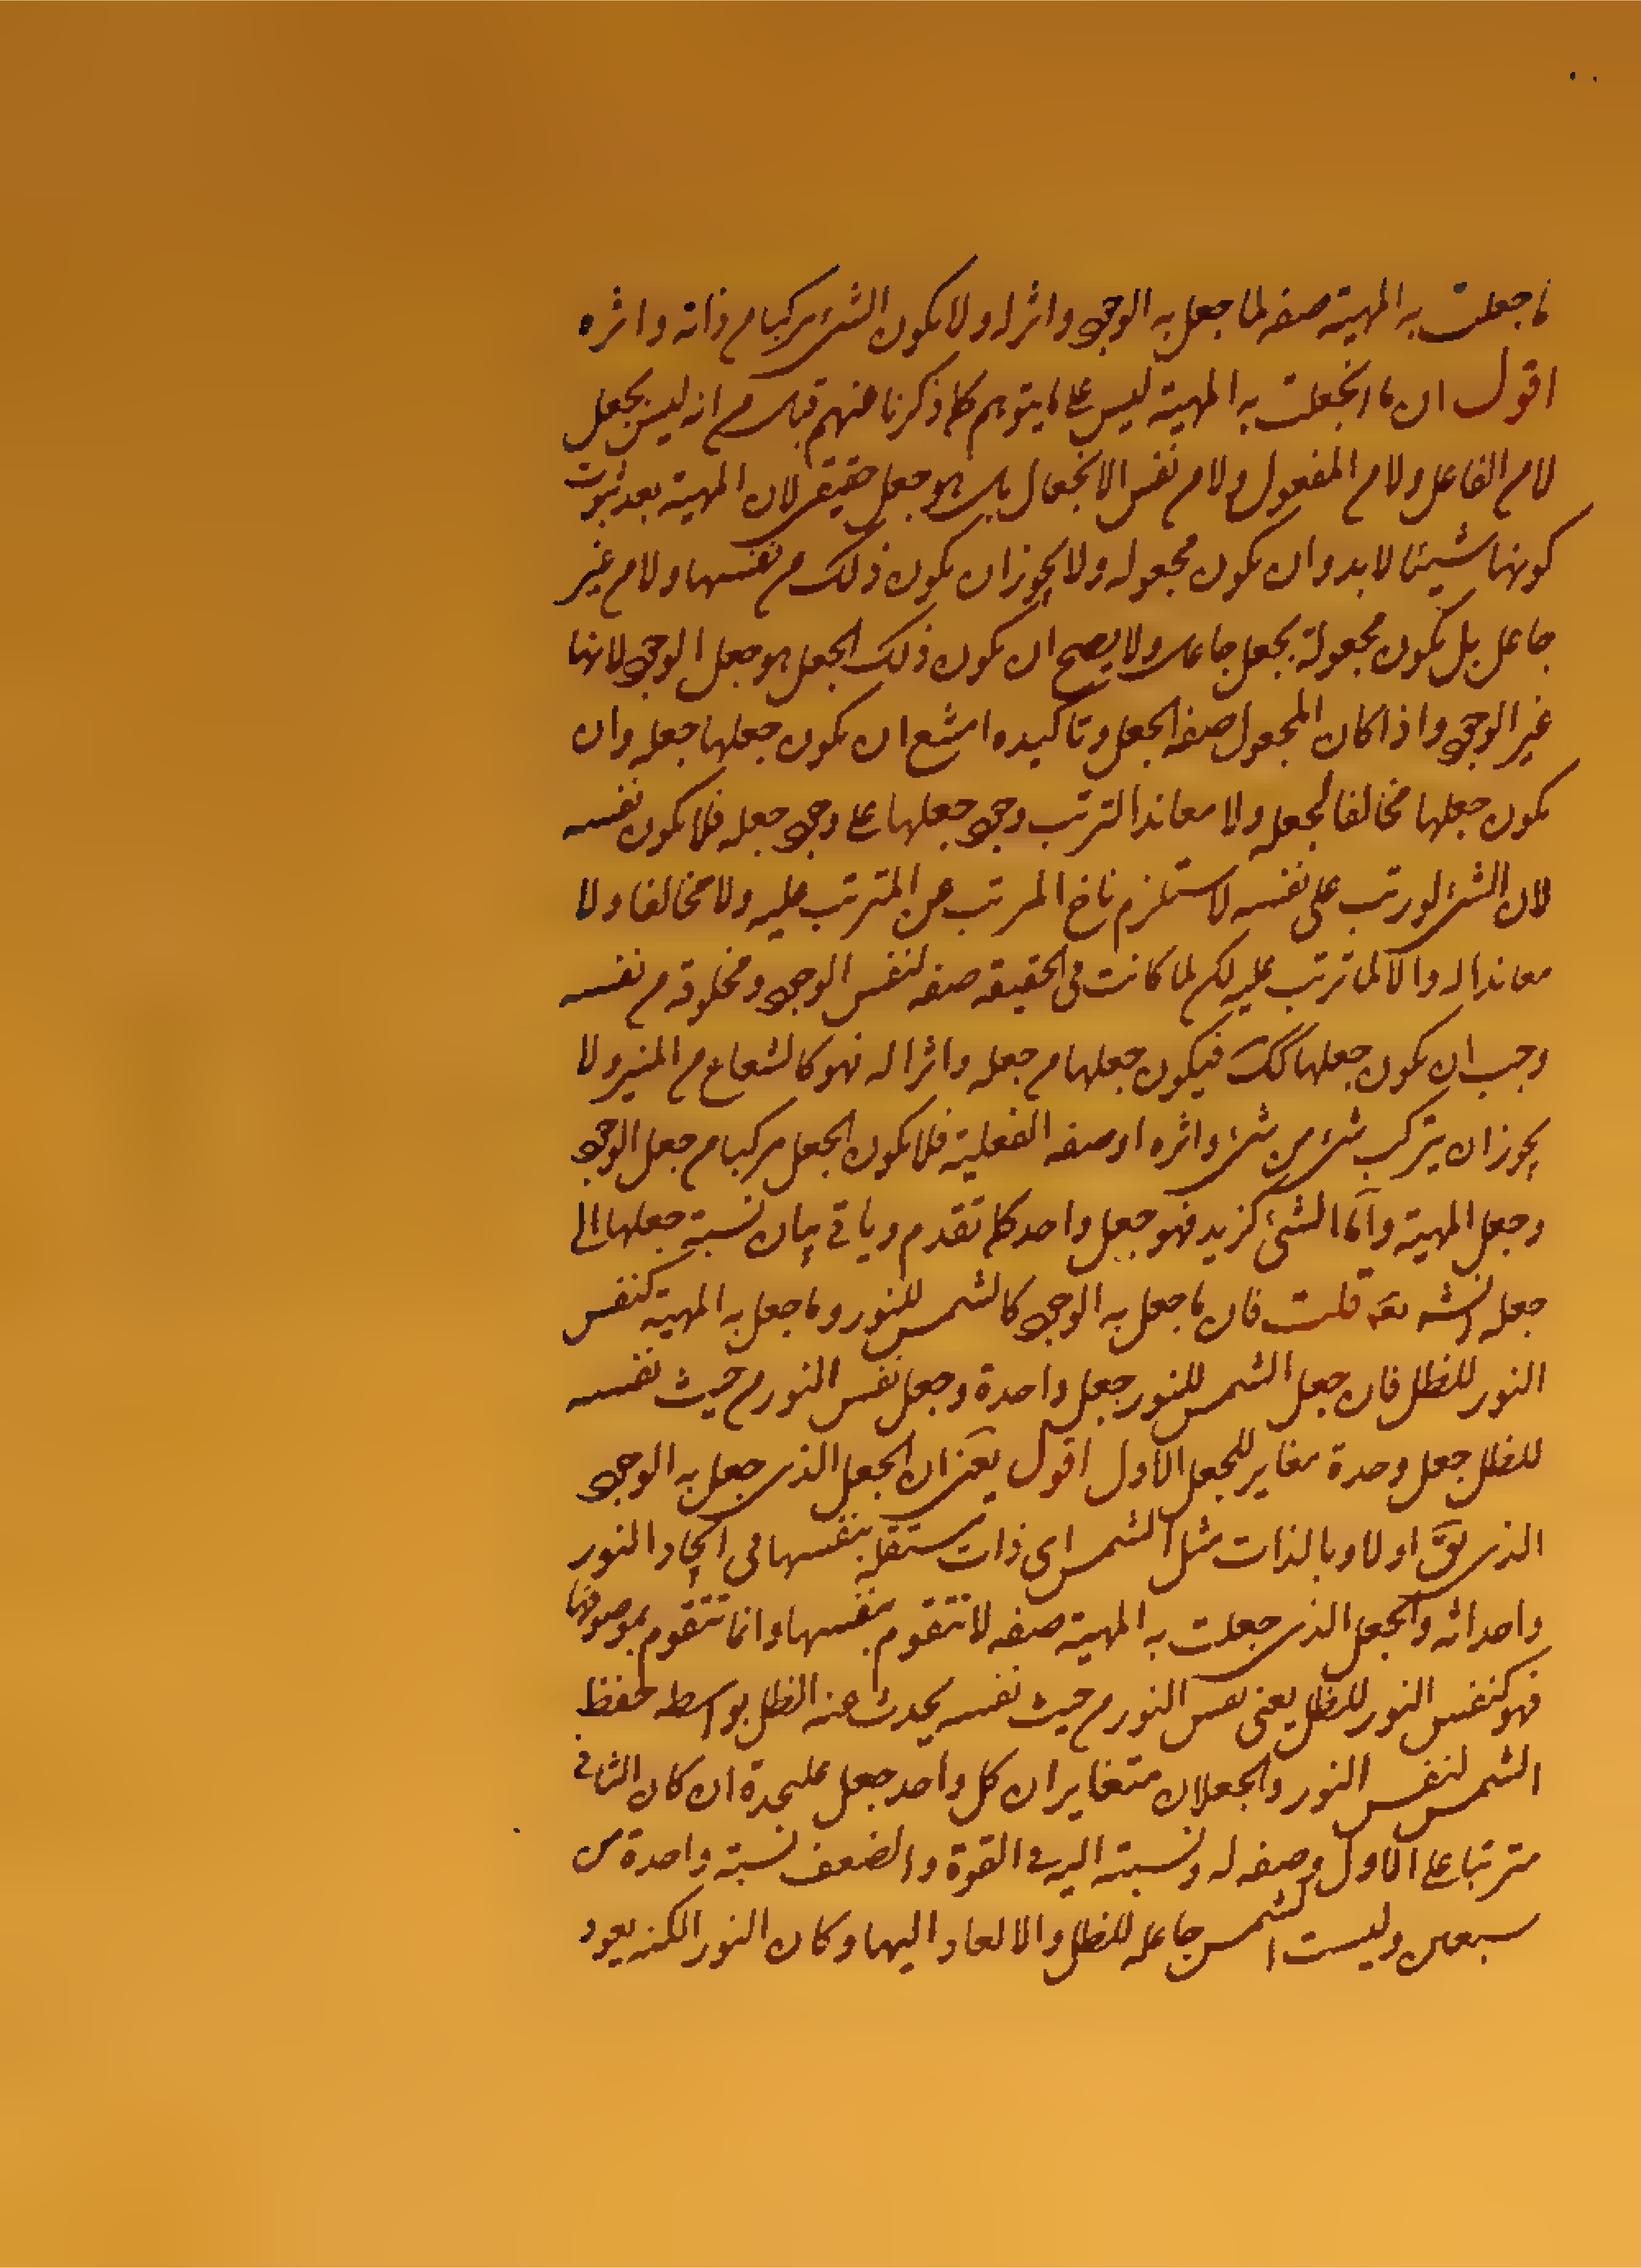 ما جعلت به المهية صفه لما جعل به الوجو واثرا له ولا يكون الشئ مركبا م ذاته واثره
اقول ان ما انجعلت به المهية ليس على ما يتوهم كما ذكرنا منهم قبل م انه ليس بجعل
لا م الفاعل ولا م المفعول ولا م نفس الانجعال بل هو جعل حقيقى لان المهية بعد ثبوت
كونها شيئا لابد وان يكون مجعوله ولا يجوز ان يكون ذلك م نفسها ولا م غير
جاعل بل يكون مجعولة بجعل جاعل ولا يصح ان يكون ذلك الجعل هو جعل الوجو لانها
غير الوجو واذا كان المجعول صفه الجعل وتاكيده امتنع ان يكون جعلها جعله وان
يكون جعلها مخالفا لجعله ولا معاندا لترتب وجو جعلها على وجو جعله فلا يكون نفسه
لان الشئ لو رتب على نفسه لاستلزم تاخ المرتب عن المترتب عليه ولا مخالفا ولا
معاندا له والا لما ترتب عليه لكم لما كانت فى الحقيقه صفه لنفس الوجو ومخلوقه م نفسه
وجب ان يكون جعلها كك فيكون جعلها م جعله واثرا له فهو كالشعاع م المنير ولا
يجوز ان يتركب شئ من شئ واثره او صفه الفعلية فلا يكون الجعل مركبا م جعل الوجو
وجعل المهية واما الشئ كزيد فهو جعل واحد كما تقدم وياتى بيان نسبة جعلها الى
جعله انشه تعه قلت فان ما جعل به الوجو كالشمس للنور وما جعل به المهية كنفس
النور للظل فان جعل الشمس للنور جعل واحدة وجعل نفس النور م حيث نفسه
للظل جعل وحدة مغاير للجعل الاول اقول يعنى ان الجعل الذى جعل به الوجو
الذى تعق اولا وبالذات مثل الشمس اى ذات مستقله بنفسها فى ايجاد النور
واحداثه والجعل الذى جعلت به المهية صفه لا تتقوم بنفسها وانما تتقوم بموصوفها
فهو كنفس النور للظل يعنى نفس النور م حيث نفسه يحدث عنه الظل بواسطه حفظ
الشمس لنفس النور والجعلان متغايران كل واحد جعل عليحدة ان كان الثانى
مترتبا على الاول وصفه له ونسبته اليه فى القوة والضعف نسبة واحدة من
سبعين وليست الشمس جاعله للظل والا لعاد اليها وكان النور الكنه يعود